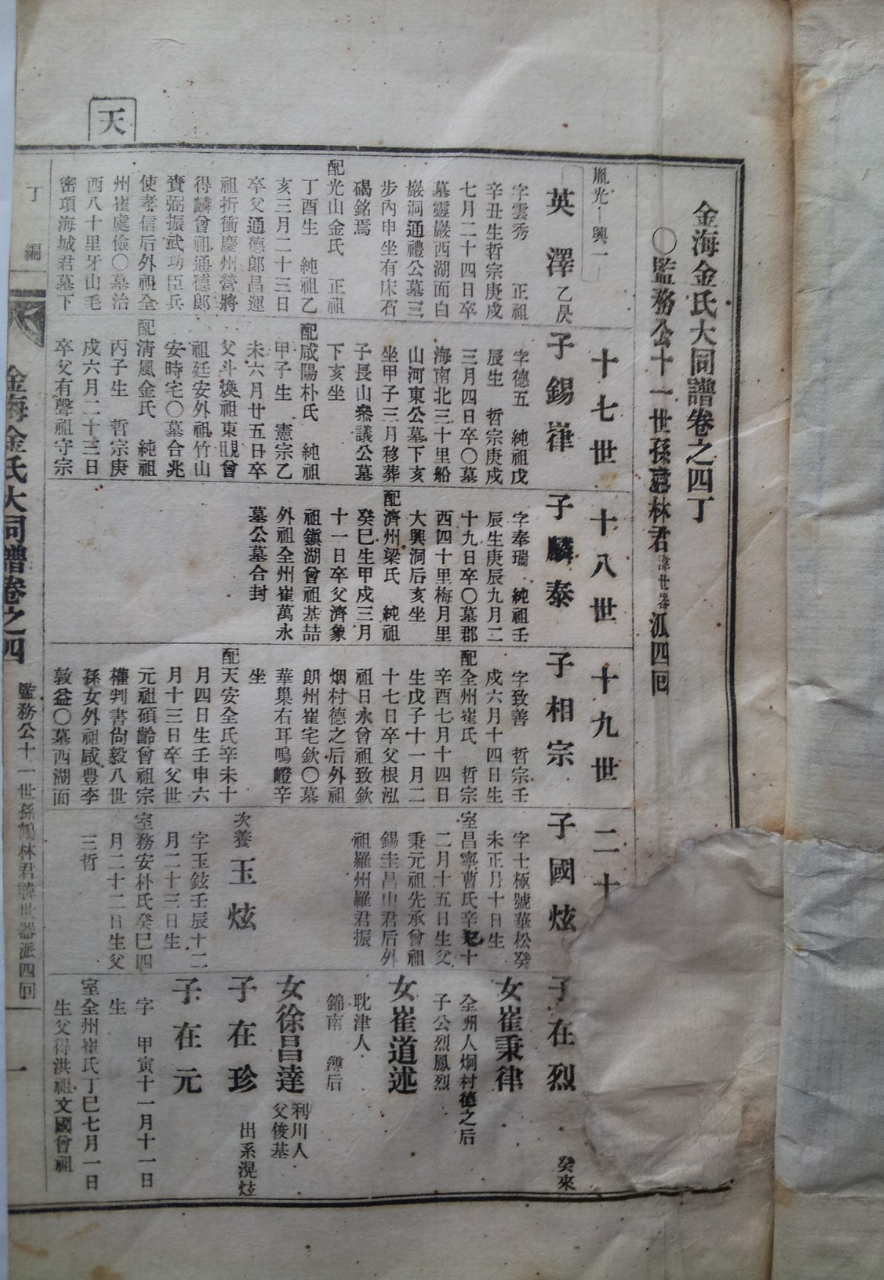 天
金海金氏大同譜卷之四丁
〇監務公十一世孫鶴林君諱世器派四回
胤光 興一
英澤 乙戾
字雲秀 正祖
辛丑生哲宗庚戌
七月二十四日卒
墓靈巖西湖面白
巖洞通禮公墓三
步內申坐有床石
碣銘焉
配光山金氏 正祖
丁酉生 純祖乙
亥三月二十三日
卒父通德郎昌運
祖折衝慶州營將
得麟曾祖通德郎
賚弼振武功臣兵
使孝信后外祖全
州崔處儉〇墓治
西八十里牙山毛
密項海城君墓下
十七世
子錫嵂
字德五 純祖戊
辰生 哲宗庚戌
三月四日卒〇墓
海南北三十里船
山河東公墓下亥
坐甲子三月移葬
子長山叅議公墓
下亥坐
配咸陽朴氏 純祖
甲子生 憲宗乙
未六月廿五日卒
父斗換祖東賏曾
祖廷安外祖竹山
安時宅〇墓合兆
配清風金氏 純祖
丙子生 哲宗庚
戌六月二十三日
卒父有聲祖守宗
十八世
子麟泰
字奉瑞 純祖壬
辰生庚辰九月二
十九日卒〇墓郡
西四十里梅月里
大興洞后亥坐
配濟州梁氏 純祖
癸巳生甲戌三月
十一日卒父濟象
祖鎭湖曾祖基喆
外祖全州崔萬永
墓公墓合封
十九世
子相宗
字致善 哲宗壬
戌六月十四日生
配全州崔氏 哲宗
辛酉七月十四日
生戊子十一月二
十七日卒父根泓
祖日永曾祖致欽
烟村德之后外祖
朗州崔宅欽〇墓
華巢右耳鳴嶝辛
坐
配天安全氏辛未十
月四日生壬申六
月十三日卒父世
元祖碩齡曾祖宗
權判書尙毅八世
孫女外祖咸豊李
敦益〇墓西湖面
二十
子國炫
字士極號華松癸
未正月十日生
室昌寧曹氏辛 十
二月十五日生父
秉元祖先承曾祖
錫圭昌山君后外
祖羅州羅君振
次養 玉炫
字玉鉉壬辰十二
月二十三日生
室務安朴氏癸巳四
月二十二日生父
三哲
子在烈 癸來
女崔秉律
全州人烱村德之后
子公烈鳳烈
女崔道述
耽津人
錦南 溥后
女徐昌達 利川人
父俊基
子在珍 出系滉炫
子在元
字 甲寅十一月十一日
生
室全州崔氏丁巳七月一日
生父得洪祖文國曾祖
丁編
金海金氏大同譜卷之四
監務公十一世孫鶴林君諱世器派四回
一